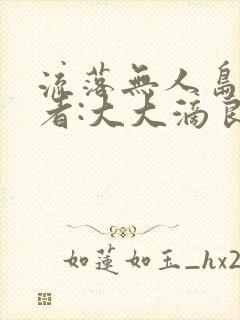 流落無人島
者:大大滴良
如蓮如玉_hx2